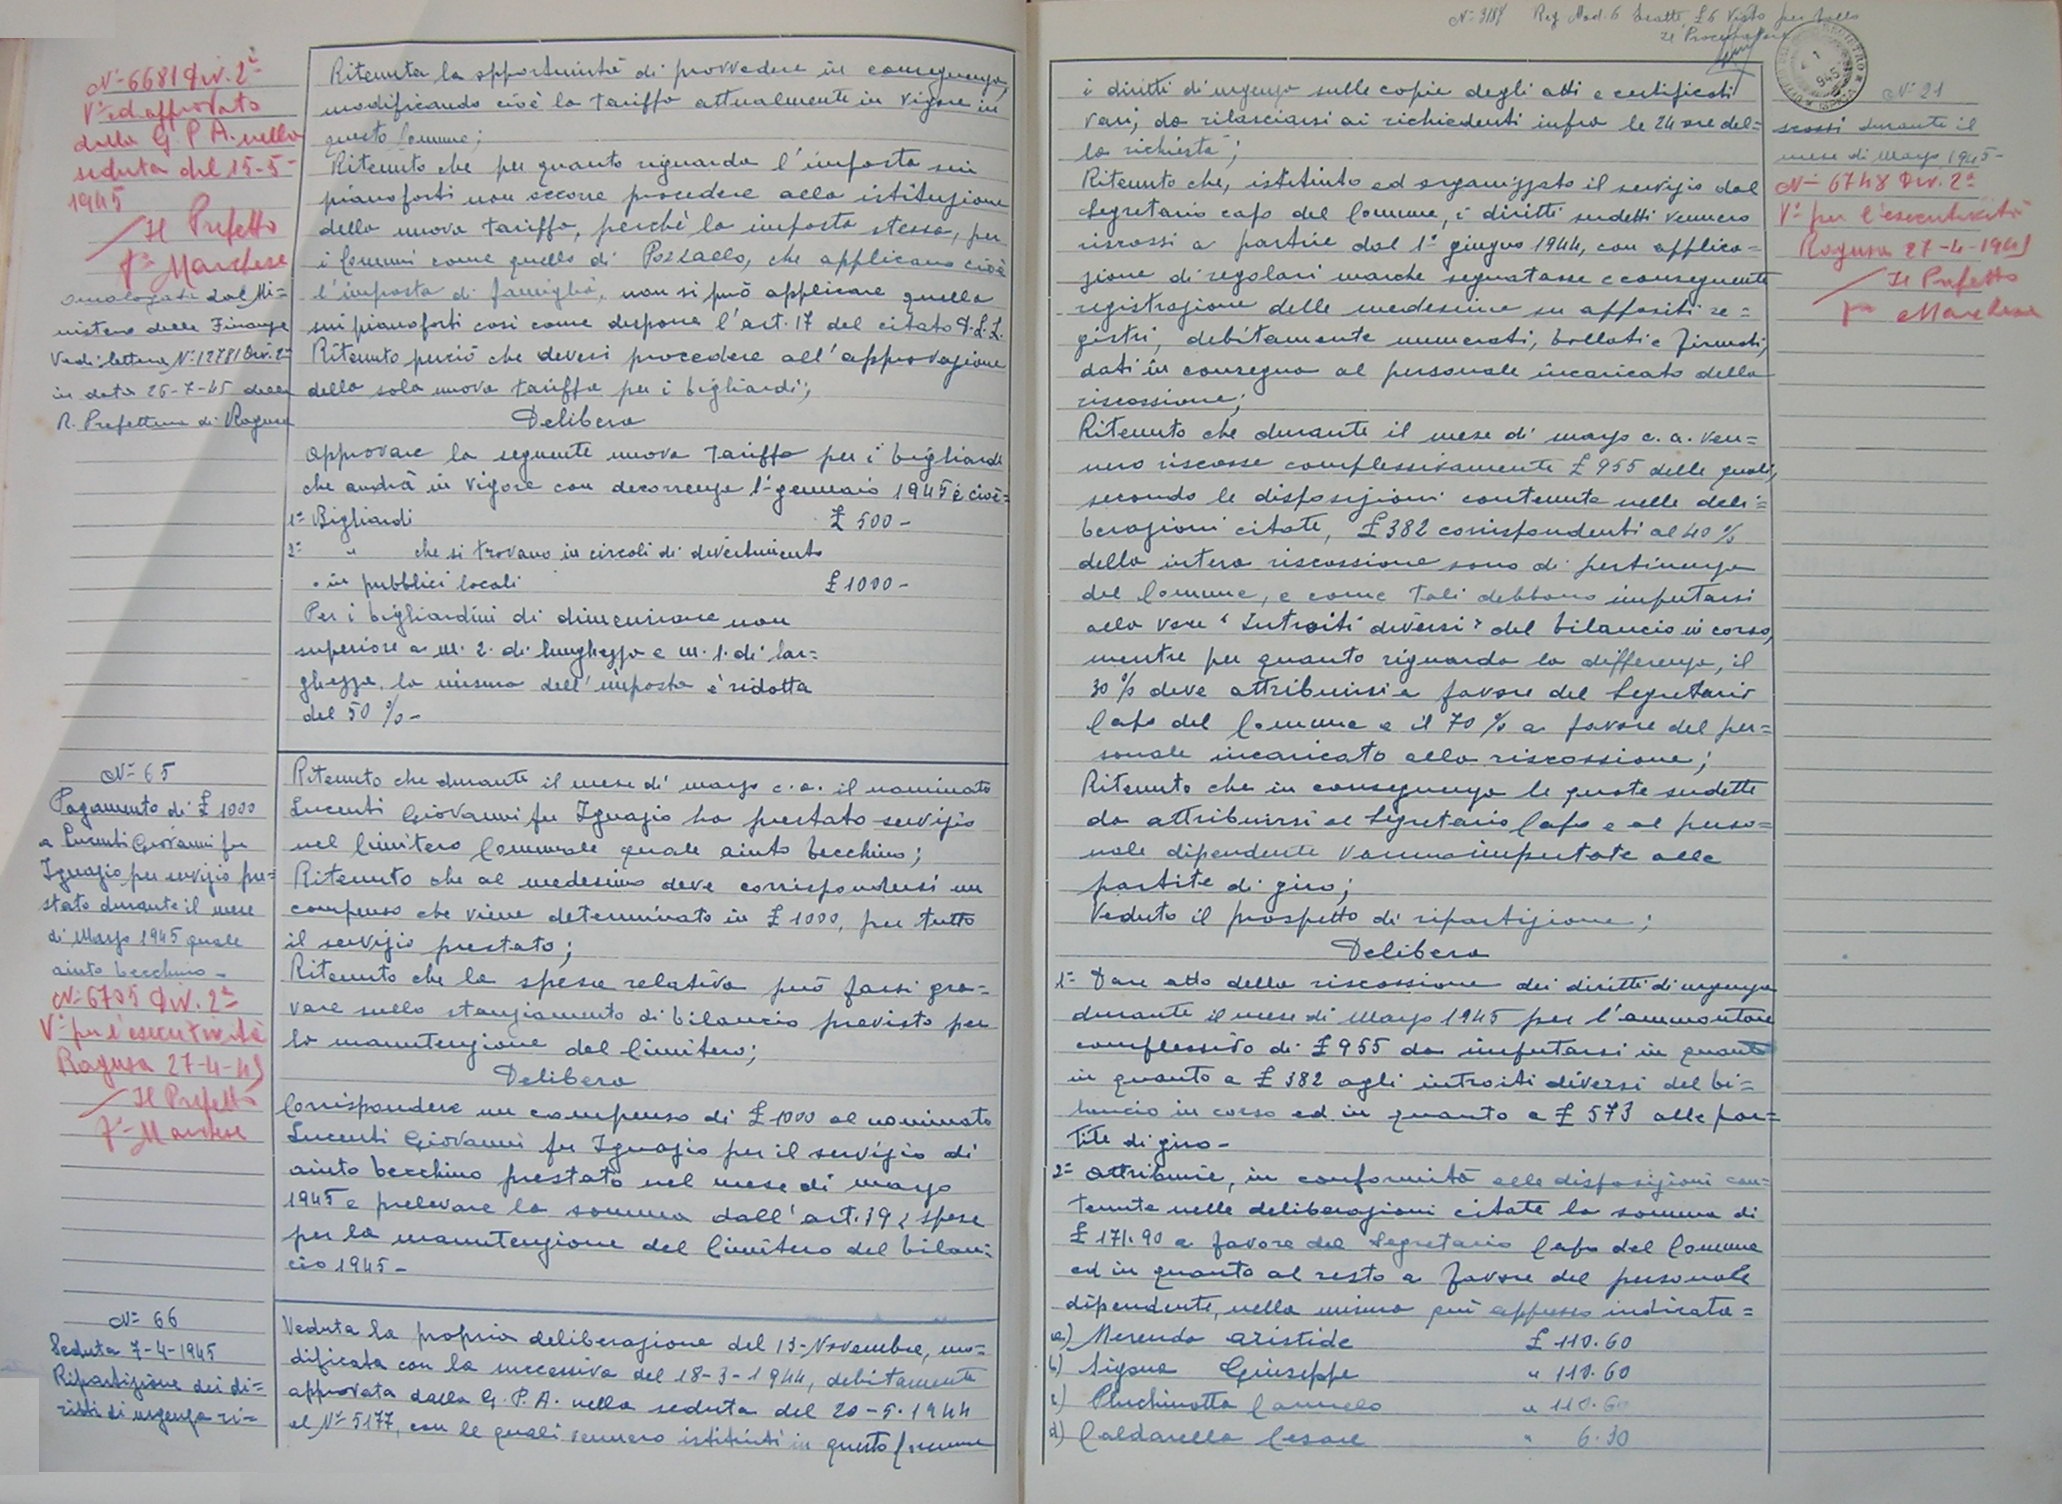 N° 6681 Div. 2ª
V° ed approvato
dalla G. P. A. nella
seduta del 15-5-
1945
Il Prefetto
F° Marchese
Omologata dal Mi=
nistero delle Finanze
Vedi lettera N° 12781 Div. 2ª
in data 26-7-45 della
R. Prefettura di Ragusa
Ritenuta la opportunità di provvedere in conseguenza,
modificando cioè la tariffa attualmente in vigore in
questo Comune;
Ritenuto che per quanto riguarda l'imposta sui
pianoforti non occorre procedere alla istituzione
della nuova tariffa, perchè la imposta stessa, per
i Comuni come quello di Pozzallo, che applicano cioè
l'imposta di famiglia, non si può applicare quella
sui pianoforti così come dispone l'art. 17 del citato D.L.L.
Ritenuto perciò che devesi procedere all'approvazione
della sola nuova tariffa per i bigliardi;
Delibera
approvare la seguente nuova tariffa per i bigliardi
che andrà in vigore con decorrenza 1° gennaio 1945 e cioè=
1° Bigliardi £ 500 -
2° " che si trovano in circoli di divertimento
o in pubblici locali £ 1000 -
Per i bigliardini di dimensione non
superiore a m. 2. di lunghezza e m. 1. di lar=
ghezza, la misura dell'imposta è ridotta
del 50 % -
N° 65
Pagamento di £ 1000
a Lucenti Giovanni fu
Ignazio per servizio pre=
stato durante il mese
di Marzo 1945 quale
aiuto becchino -
N° 6705 Div. 2ª
V° per l'esecutività
Ragusa 27-4-45
Il Prefetto
F° Marchese
Ritenuto che durante il mese di marzo c.a. il nominato
Lucenti Giovanni fu Ignazio ha prestato servizio
nel Cimitero Comunale quale aiuto becchino;
Ritenuto che al medesimo deve corrispondersi un
compenso che viene determinato in £ 1000, per tutto
il servizio prestato;
Ritenuto che la spesa relativa può farsi gra=
vare sullo stanziamento di bilancio previsto per
la manutenzione del Cimitero;
Delibera
Corrispondere un compenso di £ 1000 al nominato
Lucenti Giovanni fu Ignazio per il servizio di
aiuto becchino prestato nel mese di marzo
1945 e prelevare la somma dall'art. 39 spese
per la manutenzione del Cimitero del bilan=
cio 1945 -
N° 66
Seduta 7-4-1945
Ripartizione dei di=
ritti di urgenza ri=
Veduta la propria deliberazione del 13-Novembre, mo=
dificata con la successiva del 18-3-1944, debitamente
approvata dalla G. P. A. nella seduta del 20-5-1944
al N° 5177, con le quali vennero istituiti in questo Comune
N° 3187 Reg. Mod. 6 Esatte £ 6 Visto per bollo
Il Procuratore
i diritti di urgenza sulle copie degli atti e certificati
vari, da rilasciarsi ai richiedenti infra le 24 ore del=
la richiesta;
Ritenuto che, istituito ed organizzato il servizio dal
Segretario capo del Comune, i diritti sudetti vennero
riscossi a partire dal 1° giugno 1944, con applica=
zione di regolari marche segnatasse e conseguente
registrazione delle medesime su appositi re=
gistri, debitamente numerati, bollati e firmati,
dati in consegna al personale incaricato della
riscossione;
Ritenuto che durante il mese di marzo c.a. ven=
nero riscosse complessivamente £ 955 delle quali,
secondo le disposizioni contenute nelle deli=
berazioni citate, £ 382 corrispondenti al 40 %
della intera riscossione sono di pertinenza
del Comune, e come tali debbono imputarsi
alla voce "Introiti diversi" del bilancio in corso,
mentre per quanto riguarda la differenza, il
30 % deve attribuirsi a favore del Segretario
Capo del Comune e il 70 % a favore del per=
sonale incaricato alla riscossione;
Ritenuto che in conseguenza le quote sudette
da attribuirsi al Segretario Capo e al perso=
nale dipendente vanno imputate alle
partite di giro;
Veduto il prospetto di ripartizione;
Delibera
1° Dare atto della riscossione dei diritti di urgenza
durante il mese di Marzo 1945 per l'ammontare
complessivo di £ 955 da imputarsi in quanto
in quanto a £ 382 agli introiti diversi del bi=
lancio in corso ed in quanto a £ 573 alle par=
tite di giro -
2° Attribuire, in conformità alle disposizioni con=
tenute nelle deliberazioni citate la somma di
£ 171.90 a favore del Segretario Capo del Comune
ed in quanto al resto a favore del personale
dipendente, nella misura qui appresso indicata=
a) Merenda Aristide £ 110.60
b) Sigona Giuseppe " 110.60
c) Pluchinotta Carmelo " 110.60
d) Caldarella Cesare " 6.30
N° 21
scossi durante il
mese di Marzo 1945-
N° 6748 Div. 2ª
V° per l'esecutività
Ragusa 27-4-1945
Il Prefetto
F° Marchese